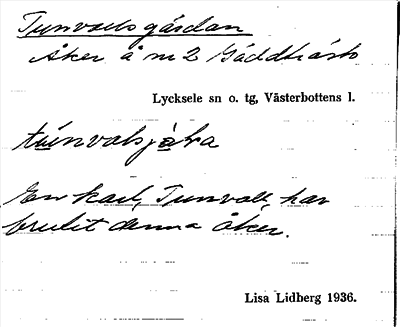 Tunvalls gärdan
Åker å nr 2 Gäddträsk
Lycksele sn o. tg, Västerbottens l.
En karl, Tunvall, har
brutit denna åker.
Lisa Lidberg 1936.